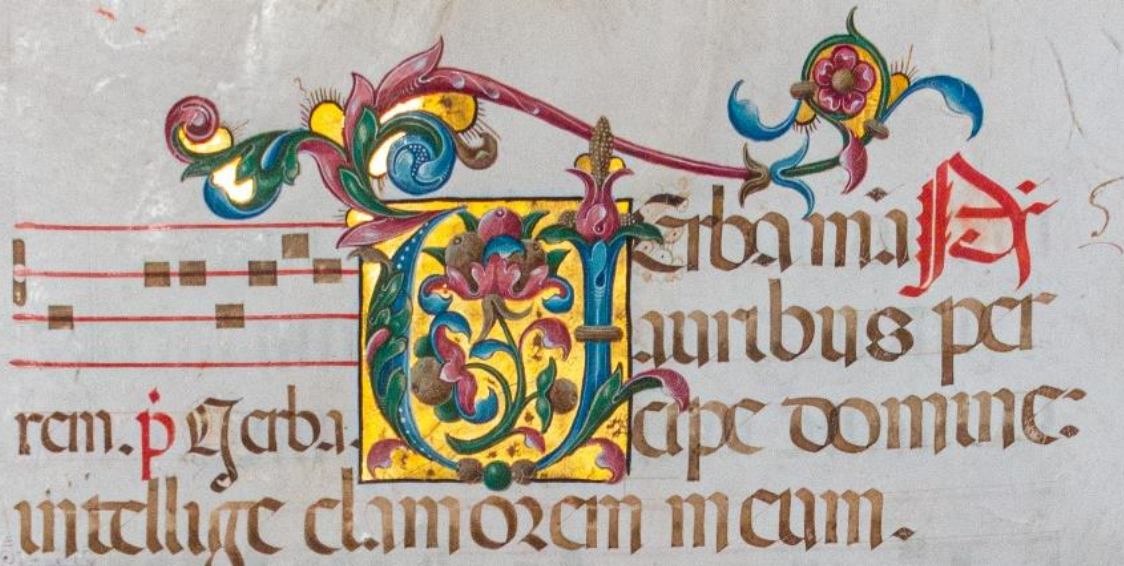 VErba mea
auribus per
rem. ṗ Verba.
cipe domine:
intellige clamorem meum.